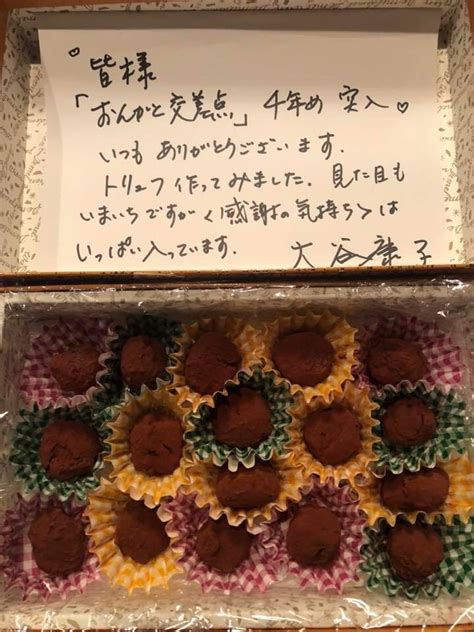 皆様
「おんがと交差点」4年め 突入♡
いつも ありがとうございます.
トリュフ 作ってみました. 見た目も
いまいちですが〈感謝の気持ち〉は
いっぱい入っています.
大谷康子